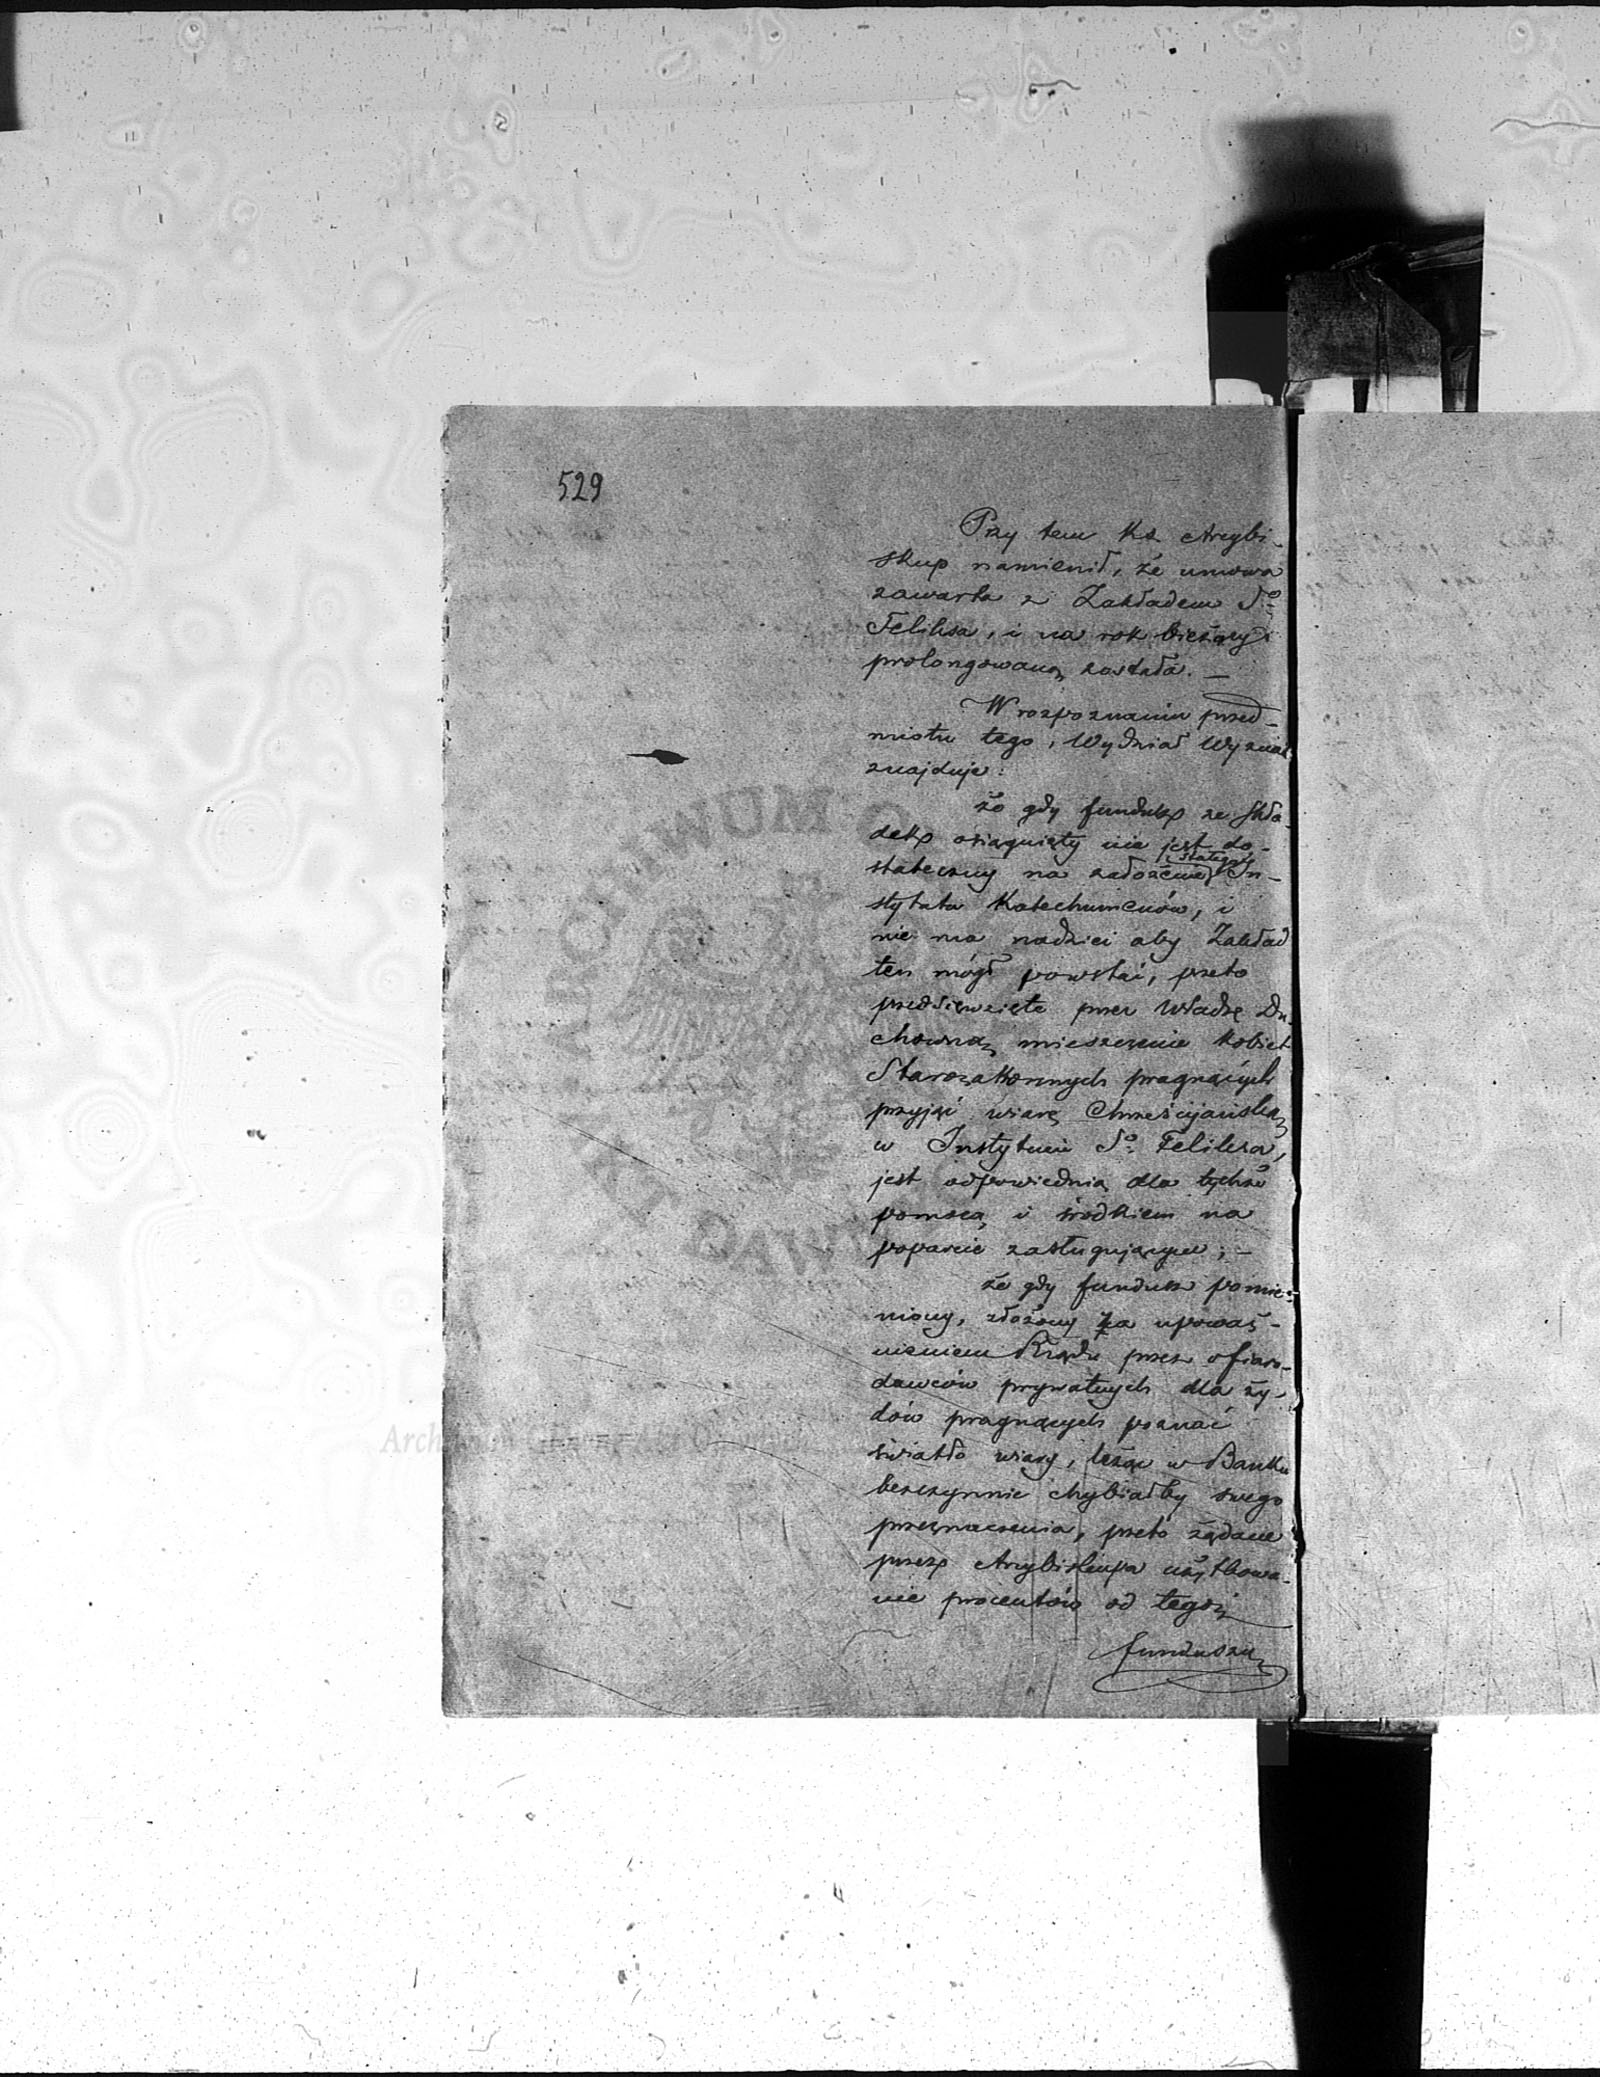 529
Przy tem Ks Arcybi-
skup namienił, że umowa
zawarta z Zakładem So
Felixa, i na rok bieżący
prolongowaną została. —
W rozpoznaniu przed-
miotu tego, Wydział Wyznań
znajduje:
że gdy fundusz ze Skła-
dek osiągnięty nie jest do-
stateczny na założenie stałego In-
stytutu Katechumenów, i
nie ma nadziei aby Zakład
ten mógł powstać, przeto
przedsięwzięte przez Władzę Du-
chowną mieszczenie Kobiet
Starozakonnych pragnących
przyjąć wiarę Chrześcijańską
w Instytucie So Felixa,
jest odpowiednią dla tychże
pomocą i środkiem na
poparcie zasługującym; —
że gdy fundusz pomie-
niony, złożony za upoważ-
nieniem Rządu przez ofiaro-
dawców prywatnych dla ży-
dów pragnących poznać
światło wiary, leżąc w Banku
bezczynnie chybiałby swego
przeznaczenia, przeto żądane
przez Arcybiskupa użytkowa-
nie procentów od tegoż
funduszu